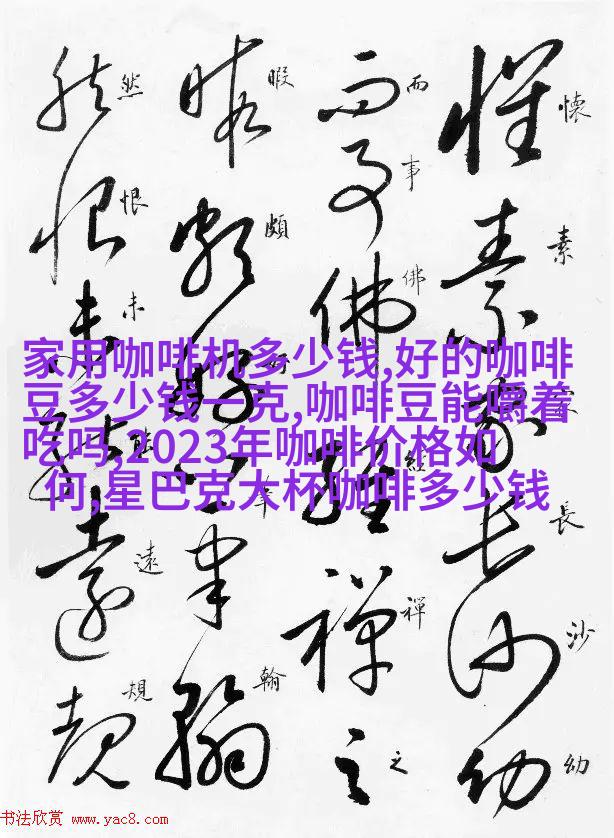 懷素家長沙幼
而事佛經禪之
暇頗好筆翰
然恨未能遠規
家用咖啡机多少钱,好的咖啡
豆多少钱一克,咖啡豆能嚼着
吃吗,2023年咖啡价格如
何,星巴克大杯咖啡多少钱
书法欣赏 www.yac8.com